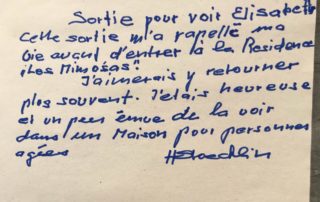 Sortie pour voir Elisabeth
Cette sortie m'a rapellé ma
vie avant d'entrer à la Residence
"Los Mimosas"
J'aimerais y retourner
plus souvent. J'etais heureuse
et un peu émue de la voir
dans un Maison pour personnes
agées